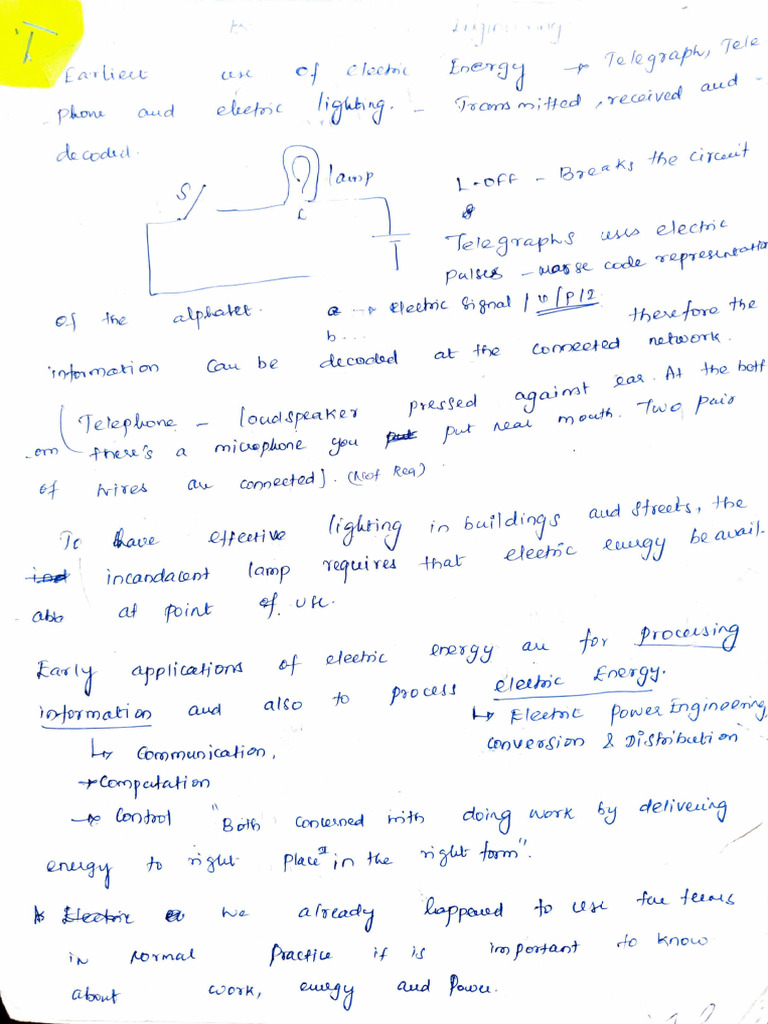 T
Engineering
Earliest use of electric Energy → Telegraph, Tele
phone and electric lighting. - Transmitted, received and -
decoded.
S
lamp
L
L-OFF - Breaks the circuit
Telegraphs uses electric
pulses - morse code representation
of the alphabet. a → Electric Signal / V/P/2
b... therefore the
information can be decoded at the connected network.
(Telephone - loudspeaker pressed against ear. At the bott
-om there's a microphone you put put near mouth. Two pair
of wires are connected]. (Not Req)
To have effective lighting in buildings and streets, the
incandacent lamp requires that electric energy be avail.
able at point of use.
Early applications of electric energy are for processing
information and also to process electric Energy.
↳ Communication, ↳ Electric Power Engineering,
→ Computation conversion & Distribution
→ Control "Both concerned with doing work by delivering
energy to right place in the right form".
* Electric we already happened to use the terms
in normal practice it is important to know
about work, energy and Power.